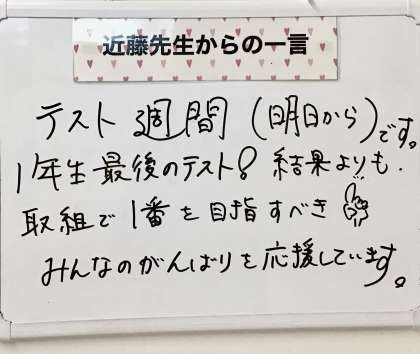 近藤先生からの一言
テスト週間(明日から)です。
1年生最後のテスト!結果よりも.
取組で1番を目指すべき
みんなのがんばりを応援しています。